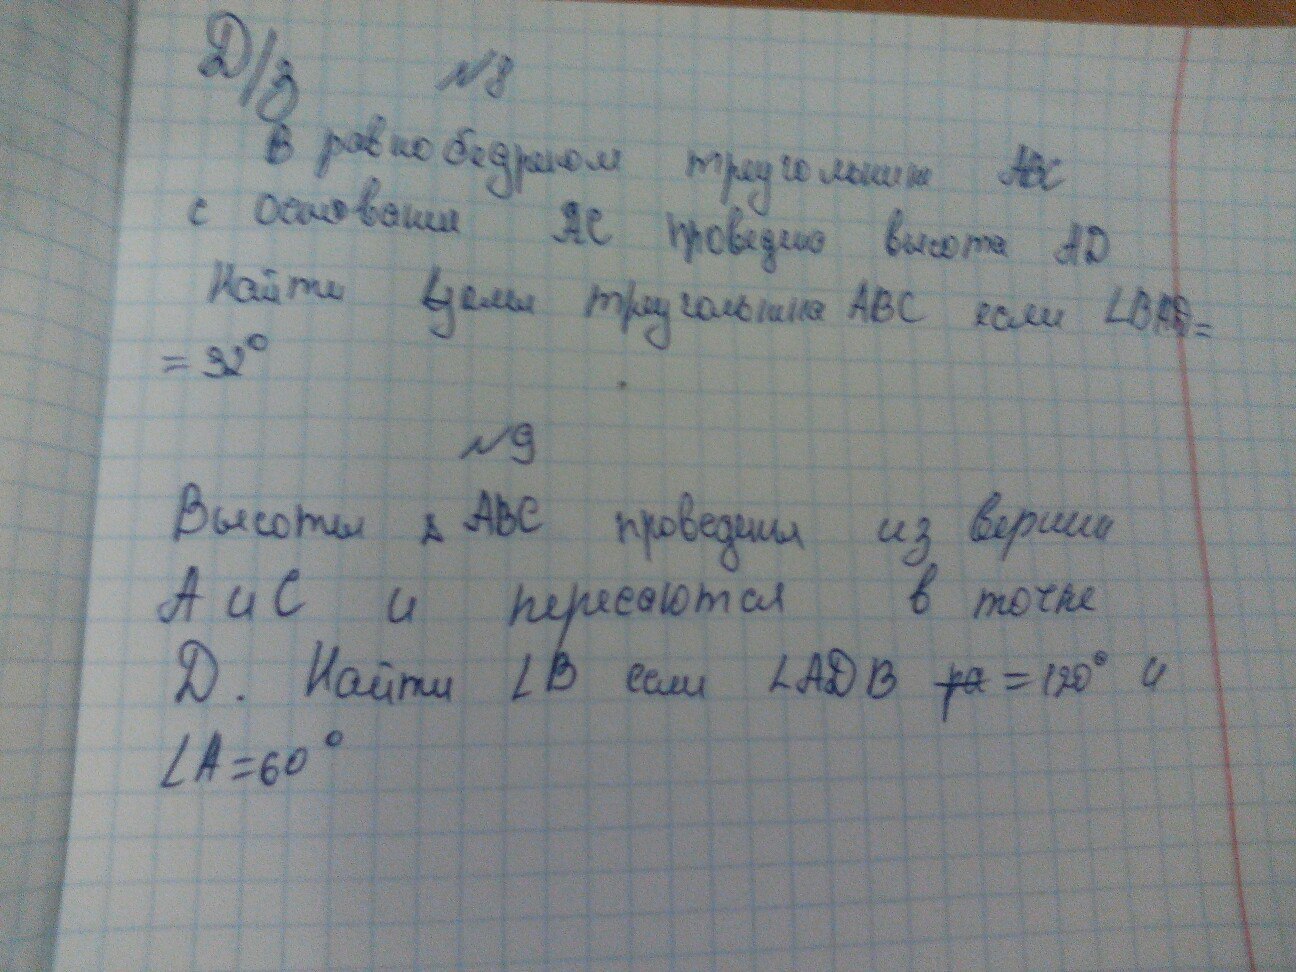 Д/З №8
В равнобедреном треугольнике ABC
с основанием AC проведено высота AD
Найти углы треугольника ABC если ∠BAD=
= 32°
№9
Высоты △ ABC проведены из вершин
A и C и пересаются в точке
D. Найти ∠B если ∠ADB = 120° и
∠A=60°